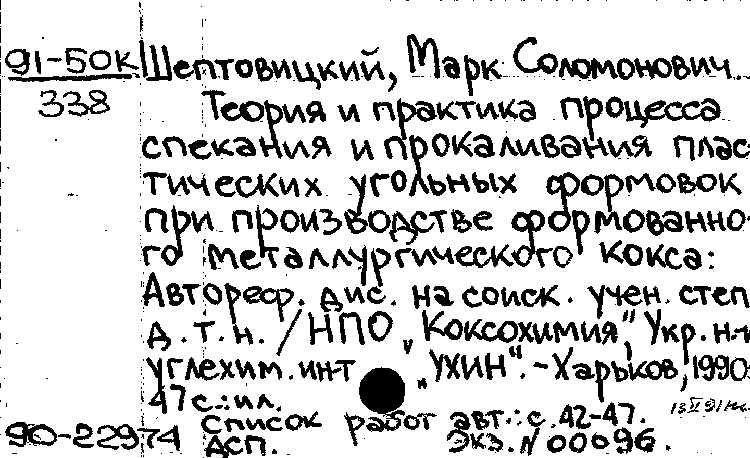 91-50К Шептовицкий, Марк Соломонович
338 Теория и практика процесса
спекания и прокаливания плас
тических угольных формовок
при производстве формованно-
го металлургического кокса:
Автореф. дис. на соиск. учен. степ
д.т.н. / НПО „Коксохимия”, Укр. н-и
углехим. ин-т „УХИН”. - Харьков, 1990.
47 с.: ил.
Список работ авт.: с. 42-47.
90-22974 ДСП. Экз. N 00096.